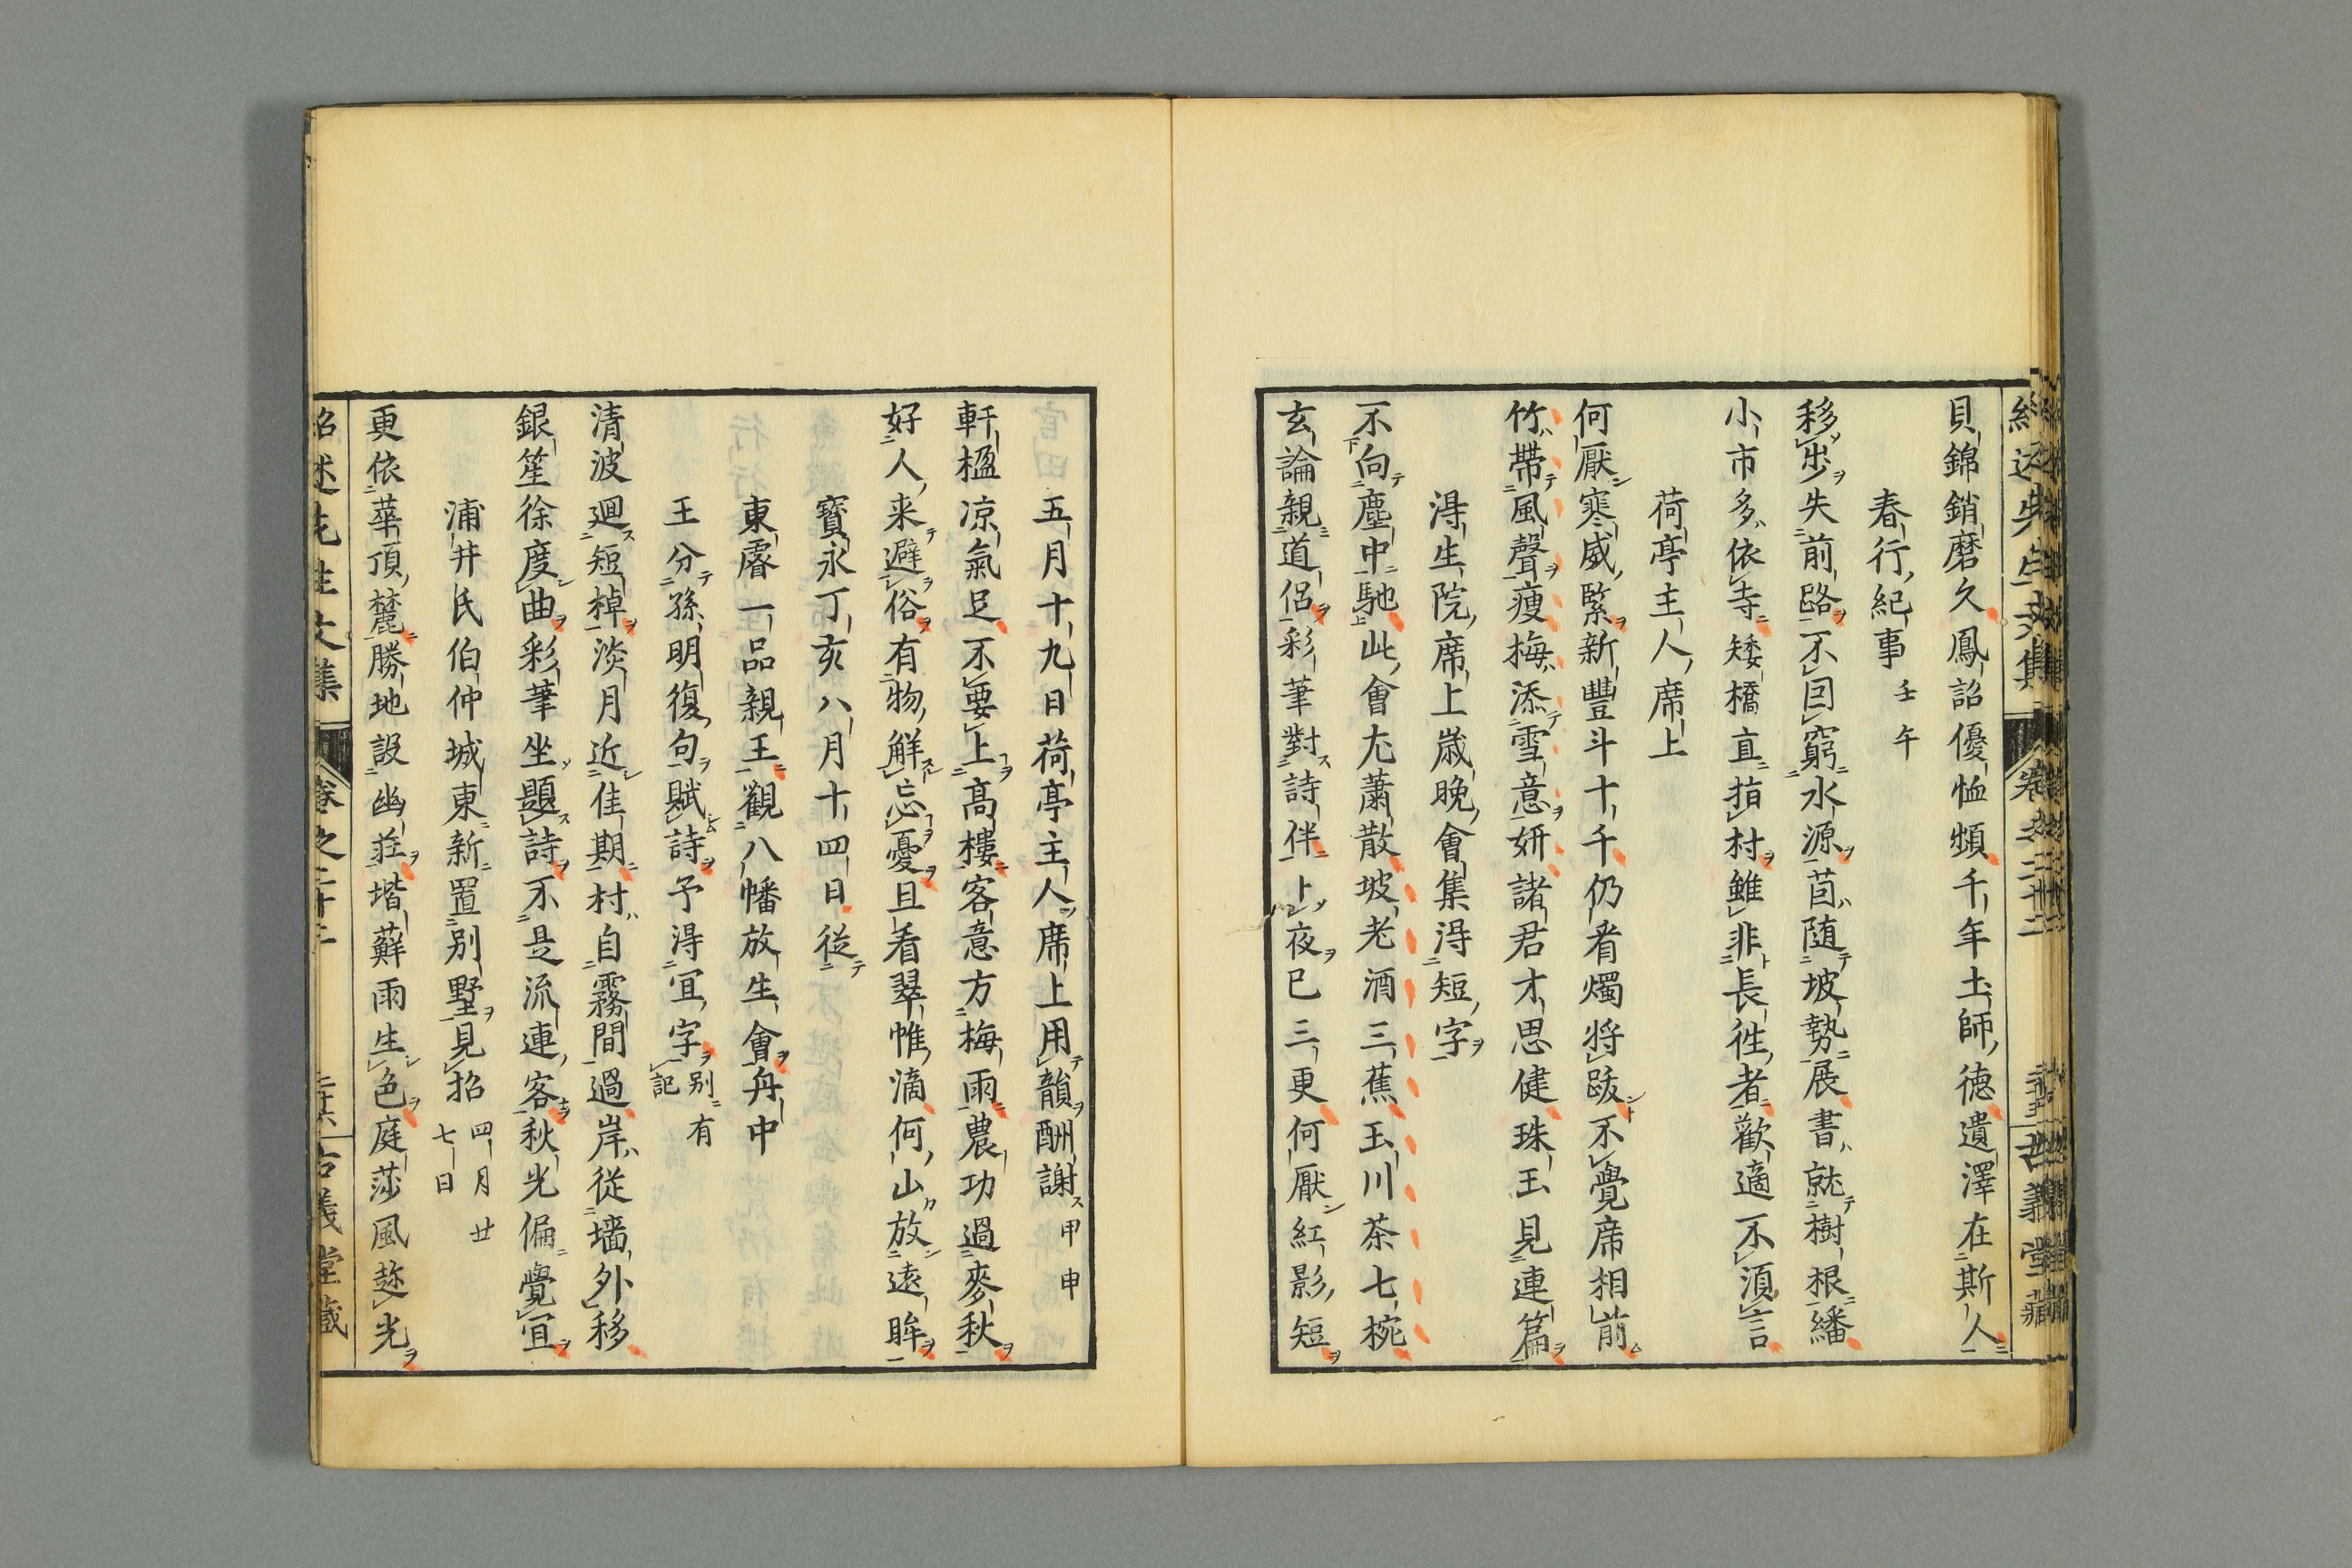 貝錦銷磨久鳳詔優恤頻千年土師德遺澤在斯人
春行紀事 壬午
移步失前路不囘窮水源苢随坡勢展書就樹根繙
小市多依寺矮橋直指村雖非長徃者歡適不須言
荷亭主人席上
何厭寒威緊新豐斗十千仍看燭将跋不覺席相前
竹帶風聲瘦梅添雪意妍諸君才思健珠玉見連篇
淂生院席上歳晚會集淂短字
不向塵中馳此會尤蕭散坡老酒三蕉玉川茶七椀
玄論親道侶彩筆對詩伴卜夜已三更何厭紅影短
五月十九日荷亭主人席上用韻酬謝 甲申
軒楹凉氣足不要上高樓客意方梅雨農功過麥秋
好人来避俗有物鮮忘憂且看翠帷滴何山放遠眸
寳永丁亥八月十四日從
東睿一品親王觀八幡放生會舟中
王分孫明復句賦詩予淂宜字 别有記
清波廻短棹淡月近佳期村自霧間過岸從墻外移
銀笙徐度曲彩筆坐題詩不是流連客秋光偏覺宜
浦井氏伯仲城東新置别墅見招 四月廿七日
更依華頂麓勝地設幽莊堦蘚雨生色庭莎風趂光
紹述先生文集 卷之二十二 古義堂藏